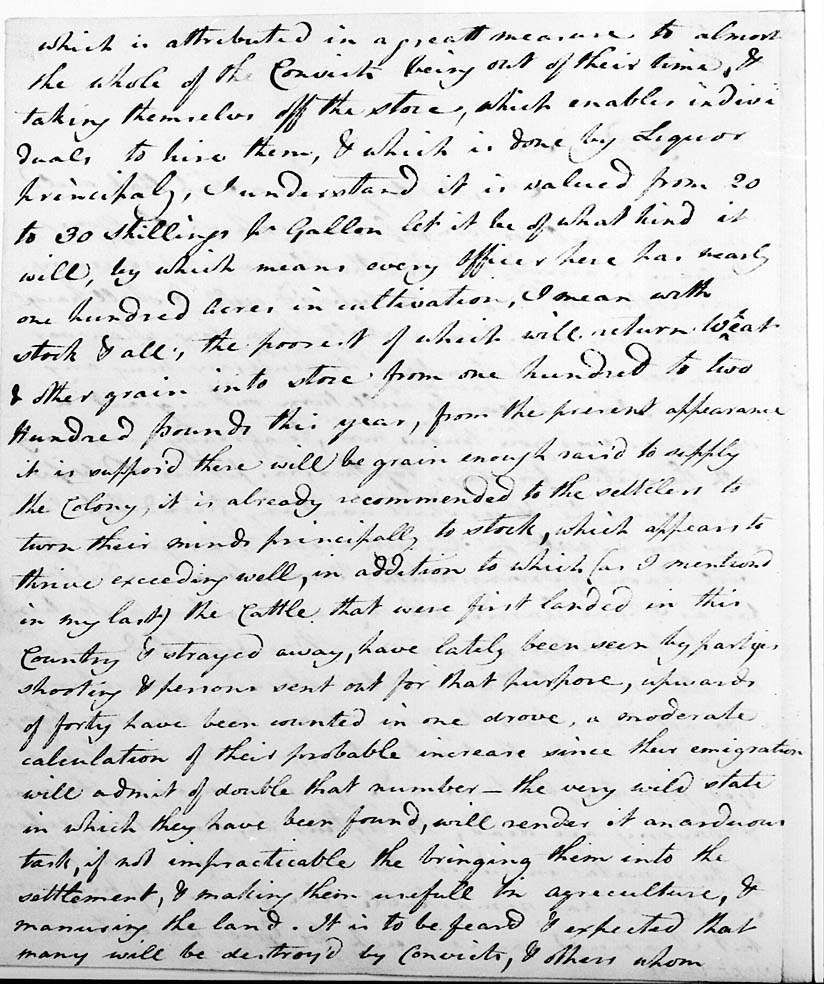 which is attributed in a greatt measure to almost
the whole of the Convicts being out of their time, &
taking themselves off the store, which enables indivi
duals to hire them, & which is done by Liquor
principaly, I understand it is valued from 20
to 30 shillings pr Gallon let it be of what kind it
will, by which means every Officer here has nearly
one hundred acres in cultivation, I mean with
stock & all, the poorest of which will return Wheat
& other grain into store from one hundred to two
Hundred pounds this year, from the present appearance
it is suppos'd there will be grain enough rais'd to supply
the Colony, it is already recommended to the settlers to
turn their minds principally to stock, which appears to
thrive exceeding well, in addition to which (as I mentiond
in my last) the Cattle that were first landed in this
Country & strayed away, have lately been seen by parties
shooting & persons sent out for that purpose, upwards
of forty have been counted in one drove, a moderate
calculation of their probable increase since their emigration
will admit of double that number – the very wild state
in which they have been found, will render it an arduous
task, if not impracticable the bringing them into the
settlement, & making them usefull in agreculture, &
manuring the land. It is to be feard & expected that
many will be destroy'd by Convicts, & others whom